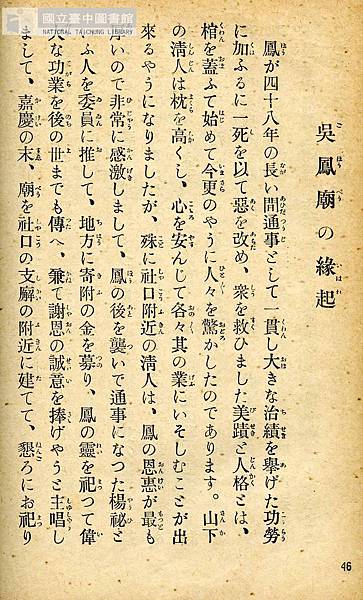 國立臺中圖書館
NATIONAL TAICHUNG LIBRARY
吳鳳廟の緣起
鳳が四十八年の長い間通事として一貫し大きな治績を擧げた功勞
に加ふるに一死を以て惡を改め、衆を救ひました美蹟と人格とは、
棺を蓋ふて始めて今更のやうに人々を驚かしたのであります。山下
の淸人は枕を高くし、心を安んじて各々其の業にいそしむことが出
來るやうになりましたが、殊に社口附近の淸人は、鳳の恩惠が最も
厚いので非常に感激しまして、鳳の後を襲いで通事になつた楊祕と
いふ人を委員に推して、地方に寄附の金を募り、鳳の靈を祀つて偉
大な功業を後の世までも傳へ、兼て謝恩の誠意を捧げやうと主唱し
まして、嘉慶の末、廟を社口の支廨の附近に建てて、懇ろにお祀り
46